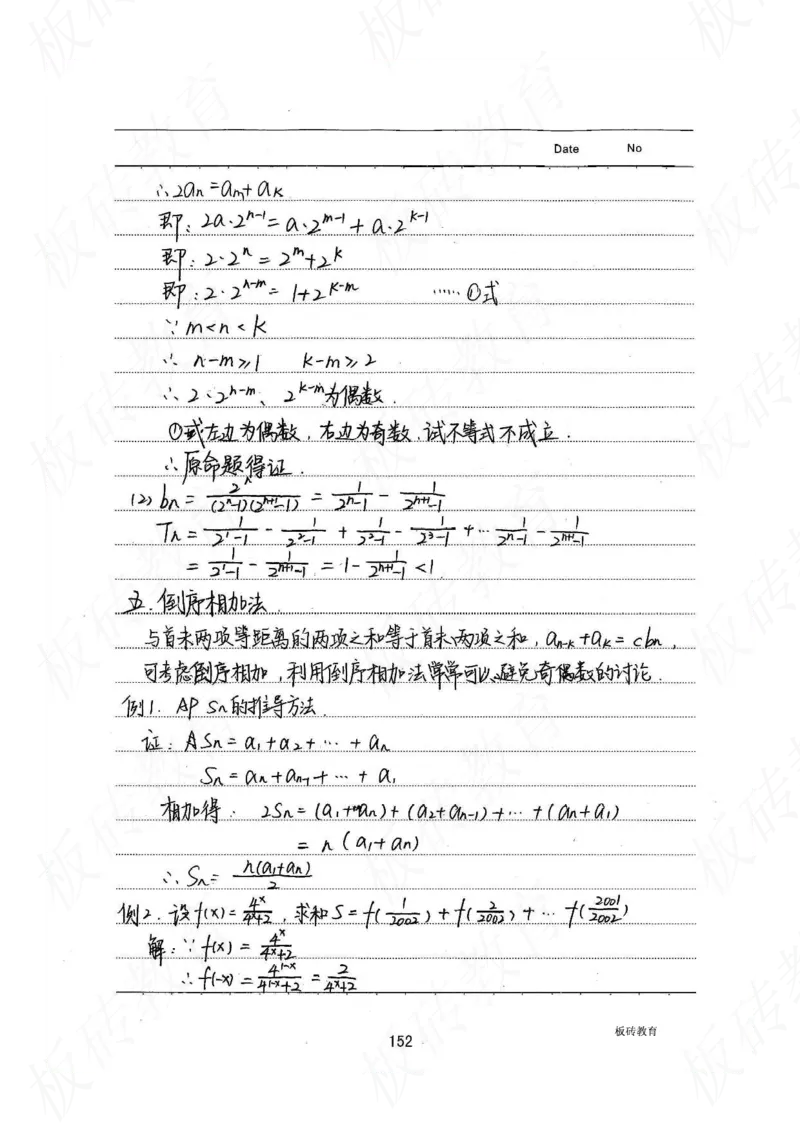 Date No
∴2an=am+ak
即：2a·2^{n-1}=a·2^{m-1}+a·2^{k-1}
即：2·2^n=2^m+2^k
即：2·2^{n-m}=1+2^{k-m} ……①式
∵m<n<k
∴ n-m≥1 k-m≥2
∴2·2^{n-m}、2^{k-m}为偶数.
①式左边为偶数，右边为奇数.试不等式不成立.
∴原命题得证.
(2) bn=2^n/((2^n-1)(2^{n+1}-1))=1/(2^n-1)-1/(2^{n+1}-1)
Tn=1/(2^1-1)-1/(2^2-1)+1/(2^2-1)-1/(2^3-1)+…1/(2^n-1)-1/(2^{n+1}-1)
=1/(2^1-1)-1/(2^{n+1}-1)=1-1/(2^{n+1}-1)<1
五.倒序相加法.
与首末两项等距离的两项之和等于首末两项之和，a_{n-k}+ak=cbn，
可考虑倒序相加，利用倒序相加法常常可以避免奇偶数的讨论.
例1. AP Sn的推导方法.
证：ASn=a1+a2+…+an
Sn=an+an-1+…+a1
相加得：2Sn=(a1+an)+(a2+an-1)+…+(an+a1)
=n(a1+an)
∴Sn=n(a1+an)/2
例2.设f(x)=4^x/(4^x+2)，求和S=f(1/2002)+f(2/2002)+…f(2001/2002)
解：∵f(x)=4^x/(4^x+2)
∴f(-x)=4^{1-x}/(4^{1-x}+2)=2/(4^x+2)
板砖教育
152